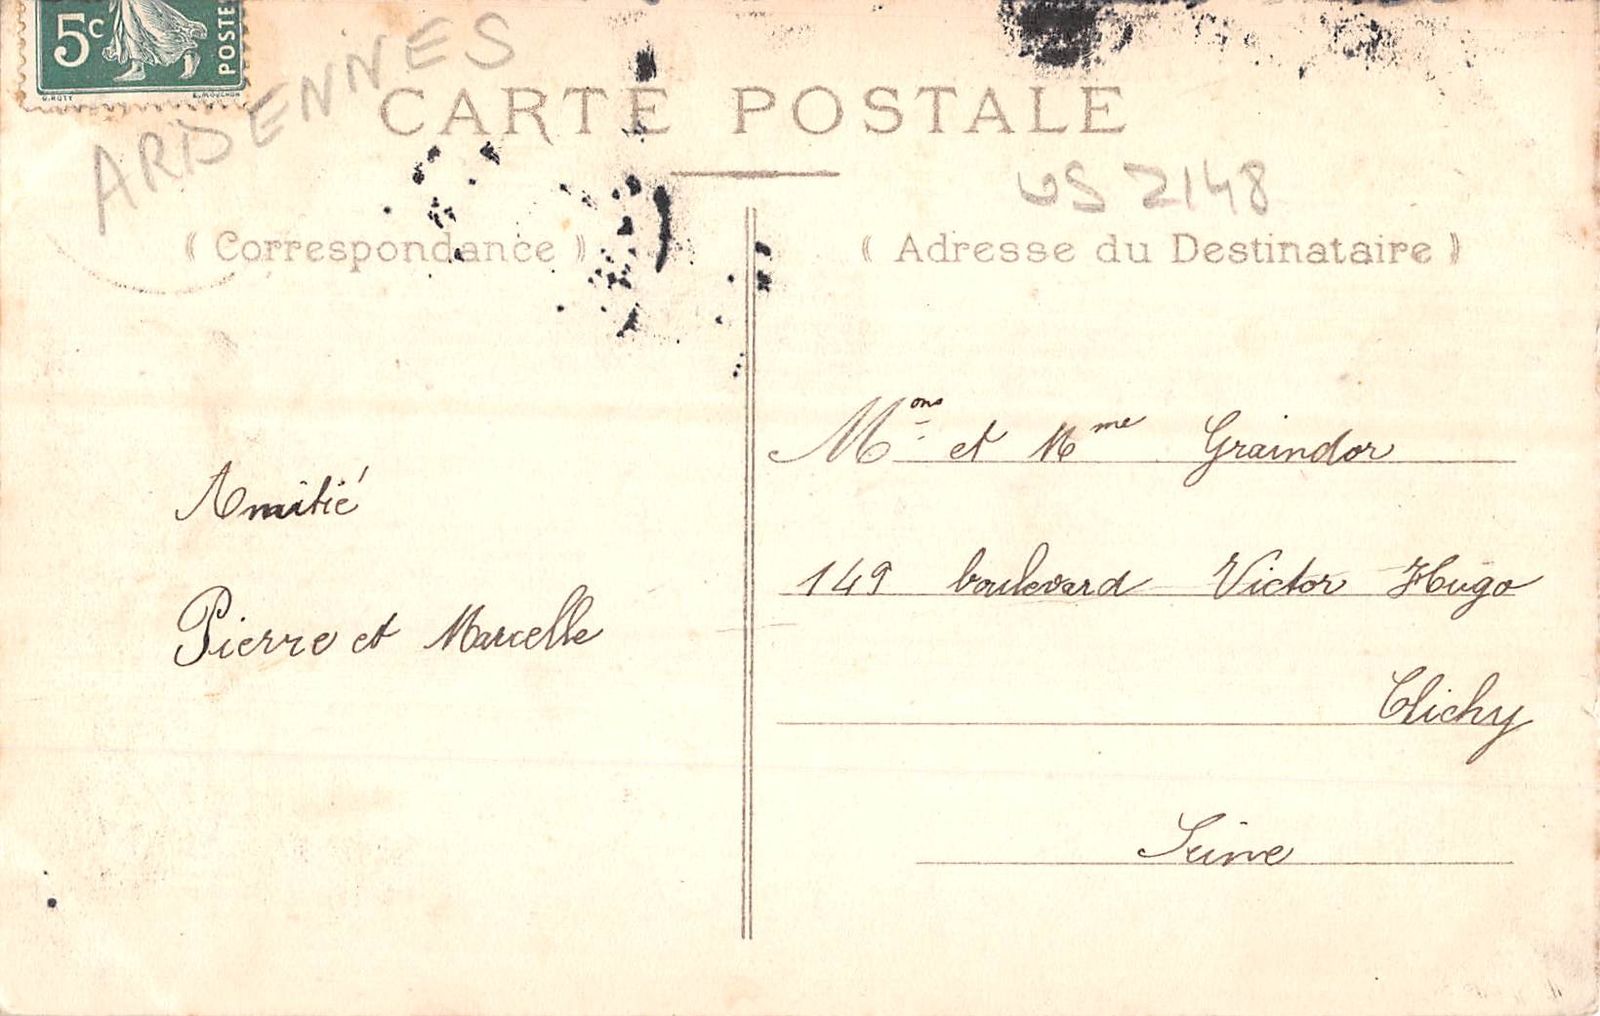 5c
POSTE
ARDENNES
CARTE POSTALE
2148
« Correspondance »
« Adresse du Destinataire »
Amitié
Pierre et Marcelle
Mons et Mme Graindor
149 boulevard Victor Hugo
Clichy
Seine